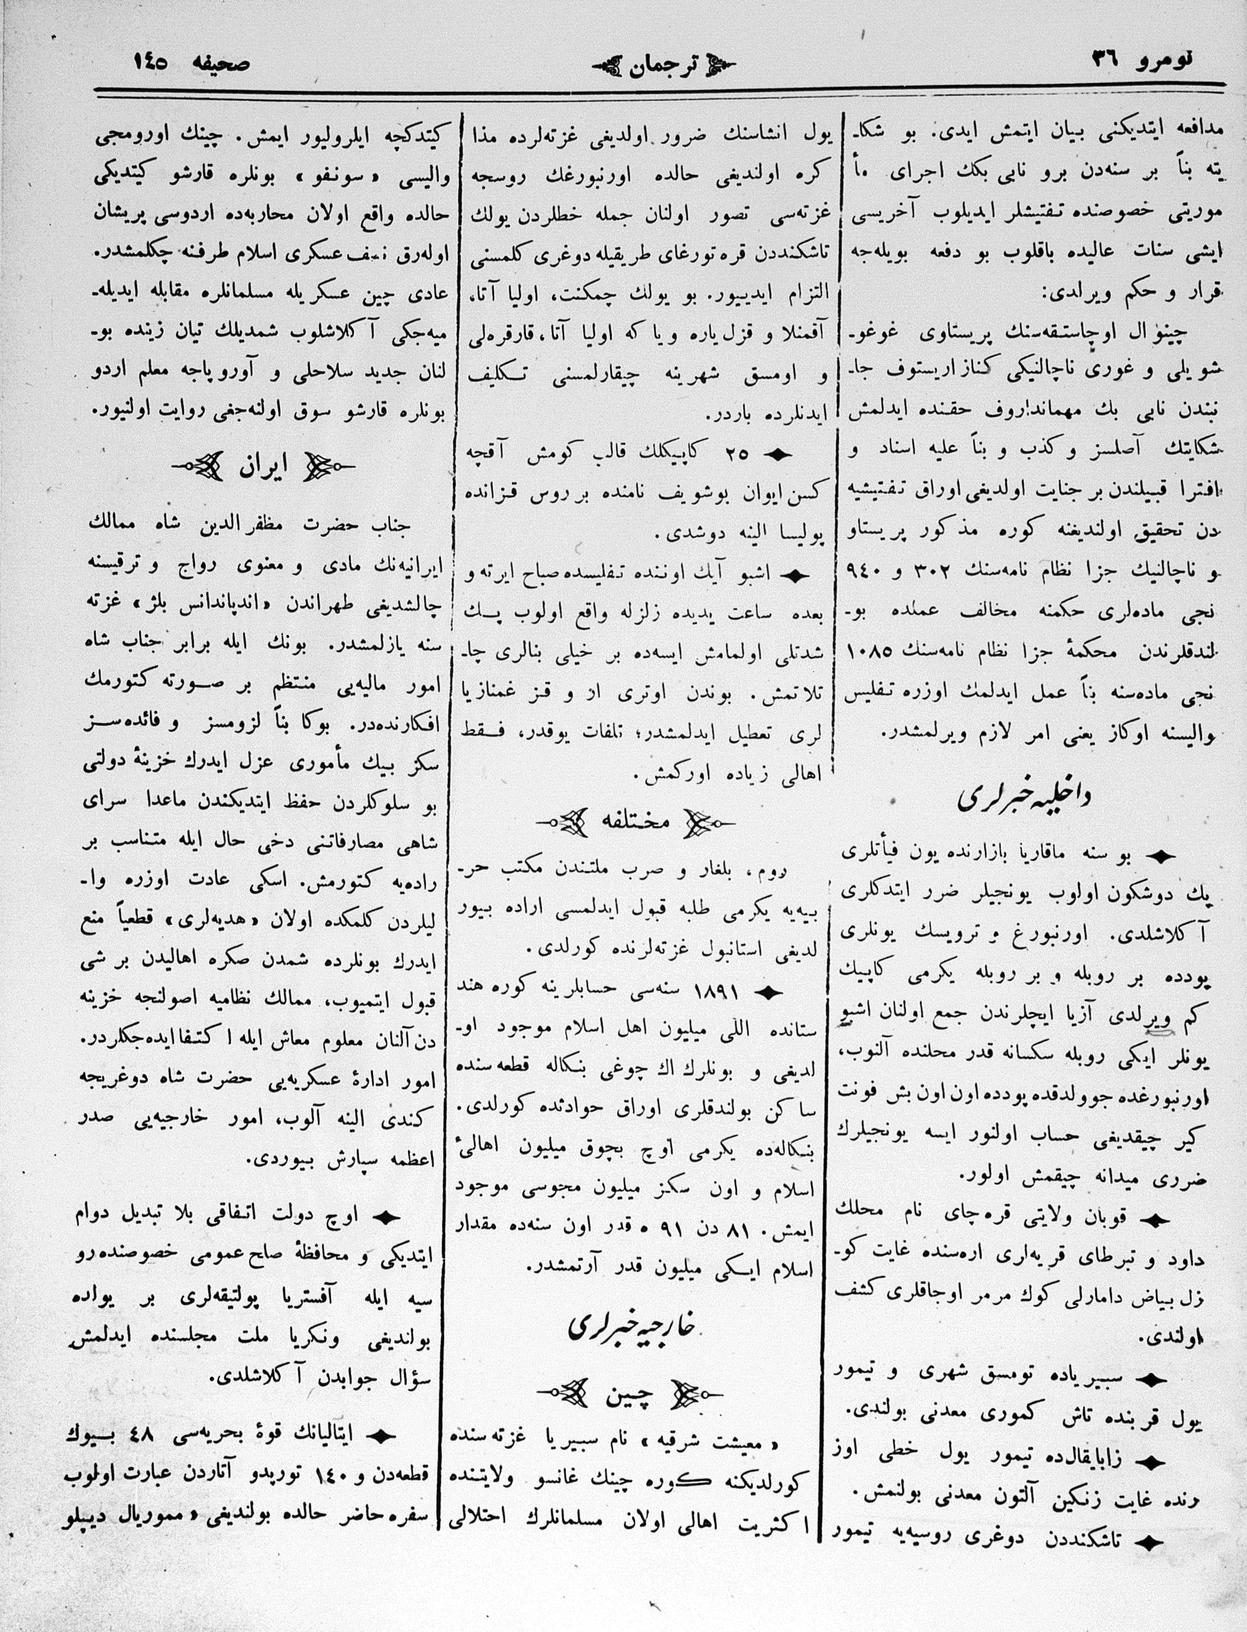 نومرو ٣٦
ترجمان
صحيفه ١٤٥
مدافعه ايتديكنى بيان ايتمش ايدى. بو شكا-
يته بناً بر سنه‌دن برو نابى بكك اجراى مأ
موريتى خصوصنده تفتيشلر ايديلوب آخريسى
ايشى سنات عاليده باقلوب بو دفعه بويله‌جه
قرار و حكم ويرلدى:
چينوال اوچاستقه‌سنك پريستاوى غوغو-
شويلى و غورى ناچالنيكى كناز اريستوف جا-
نبندن نابى بك مهمانداروف حقنده ايدلمش
شكايتك آصلسز و كذب و بناً عليه اسناد و
افترا قبيلندن بر جنايت اولديغى اوراق تفتيشيه
دن تحقيق اولنديغنه كوره مذكور پريستاو
و ناچالنيك جزا نظام نامه‌سنك ٣٠٢ و ٩٤٠
نجى ماده‌لرى حكمنه مخالف عملده بو-
لندقلرندن محكمۀ جزا نظام نامه‌سنك ١٠٨٥
نجى ماده‌سنه بناً عمل ايدلمك اوزره تفليس
واليسنه اوكاز يعنى امر لازم ويرلمشدر.
داخليه خبرلرى
بو سنه ماقاريا بازارنده يون فيأتلرى
پك دوشكون اولوب يونجيلر ضرر ايتدكلرى
آكلاشلدى. اورنبورغ و ترويسك يونلرى
پودده بر روبله و بر روبله يكرمى كاپيك
كم ويرلدى آزيا ايچلرندن جمع اولنان اشبو
يونلر ايكى روبله سكسانه قدر محلنده آلنوب،
اورنبورغده جوولدقده پودده اون اون بش فونت
كير چيقديغى حساب اولنور ايسه يونجيلرك
ضررى ميدانه چيقمش اولور.
قوبان ولايتى قره چاى نام محلك
داود و تبرطاى قريه‌لرى اره‌سنده غايت كو-
زل بياض دامارلى كوك مرمر اوجاقلرى كشف
اولندى.
سبيرياده تومسق شهرى و تيمور
يول قربنده تاش كمورى معدنى بولندى.
زابايقال‌ده تيمور يول خطى اوز
رنده غايت زنكين آلتون معدنى بولنمش.
تاشكنددن دوغرى روسيه‌يه تيمور
يول انشاسنك ضرور اولديغى غزته‌لرده مذا
كره اولنديغى حالده اورنبورغك روسجه
غزته‌سى تصور اولنان جمله خطلردن يولك
تاشكنددن قره تورغاى طريقيله دوغرى كلمسنى
التزام ايدييور. بو يولك چمكنت، اوليا آتا،
آقمنلا و قزل ياره و يا كه اوليا آتا، قارقره‌لى
و اومسق شهرينه چيقارلمسنى تكليف
ايدنلرده باردر.
٢٥ كاپيكلك قالب كومش آقچه
كسن ايوان بوشويف نامنده بر روس قزانده
پوليسا الينه دوشدى.
اشبو آيك اوننده تفليسده صباح ايرته و
بعده ساعت يديده زلزله واقع اولوب پك
شدتلى اولمامش ايسه‌ده بر خيلى بنالرى چا-
تلاتمش. بوندن اوترى ار و قز غمنازيا
لرى تعطيل ايدلمشدر؛ تلفات يوقدر، فقط
اهالى زياده اوركمش.
مختلفه
روم، بلغار و صرب ملتندن مكتب حر-
بيه‌يه يكرمى طلبه قبول ايدلمسى اراده بيور
لديغى استانبول غزته‌لرنده كورلدى.
١٨٩١ سنه‌سى حسابلرينه كوره هند
ستانده اللى ميليون اهل اسلام موجود او-
لديغى و بونلرك اك چوغى بنكاله قطعه‌سنده
ساكن بولندقلرى اوراق حوادثده كورلدى.
بنكاله‌ده يكرمى اوچ بچوق ميليون اهالىٔ
اسلام و اون سكز ميليون مجوسى موجود
ايمش. ٨١ دن ٩١ ه قدر اون سنه‌ده مقدار
اسلام ايكى ميليون قدر آرتمشدر.
خارجيه خبرلرى
چين
«معيشت شرقيه» نام سبيريا غزته‌سنده
كورلديكنه كوره چينك غانسو ولايتنده
اكثريت اهالى اولان مسلمانلرك احتلالى
كيتدكچه ايلروليور ايمش. چينك اورومجى
واليسى «سونفو» بونلره قارشو كيتديكى
حالده واقع اولان محاربه‌ده اردوسى پريشان
اوله‌رق نصف عسكرى اسلام طرفنه چكلمشدر.
عادى چين عسكريله مسلمانلره مقابله ايديله-
ميه‌جكى آكلاشلوب شمديلك تيان زينده بو-
لنان جديد سلاحلى و آوروپاجه معلم اردو
بونلره قارشو سوق اولنه‌جغى روايت اولنيور.
ايران
جناب حضرت مظفرالدين شاه ممالك
ايرانيه‌نك مادى و معنوى رواج و ترقيسنه
چالشديغى طهراندن «اندپاندانس بلژ» غزته
سنه يازلمشدر. بونك ايله برابر جناب شاه
امور ماليه‌يى منتظم بر صورته كتورمك
افكارنده‌در. بوكا بناً لزومسز و فائده‌سز
سكز بيك مأمورى عزل ايدرك خزينۀ دولتى
بو سلوكلردن حفظ ايتديكندن ماعدا سراى
شاهى مصارفاتنى دخى حال ايله متناسب بر
راده‌يه كتورمش. اسكى عادت اوزره وا-
ليلردن كلمكده اولان «هديه‌لرى» قطعياً منع
ايدرك بونلرده شمدن صكره اهاليدن بر شى
قبول ايتميوب، ممالك نظاميه اصولنجه خزينه
دن آلنان معلوم معاش ايله اكتفا ايده‌جكلردر.
امور ادارۀ عسكريه‌يى حضرت شاه دوغريجه
كندى الينه آلوب، امور خارجيه‌يى صدر
اعظمه سپارش بيوردى.
اوچ دولت اتفاقى بلا تبديل دوام
ايتديكى و محافظۀ صلح عمومى خصوصنده رو
سيه ايله آفستريا پولتيقه‌لرى بر يولده
بولنديغى ونكريا ملت مجلسنده ايدلمش
سؤال جوابدن آكلاشلدى.
ايتاليانك قوۀ بحريه‌سى ٤٨ بيوك
قطعه‌دن و ١٤٠ تورپدو آتاردن عبارت اولوب
سفره حاضر حالده بولنديغى «مموريال ديپلو